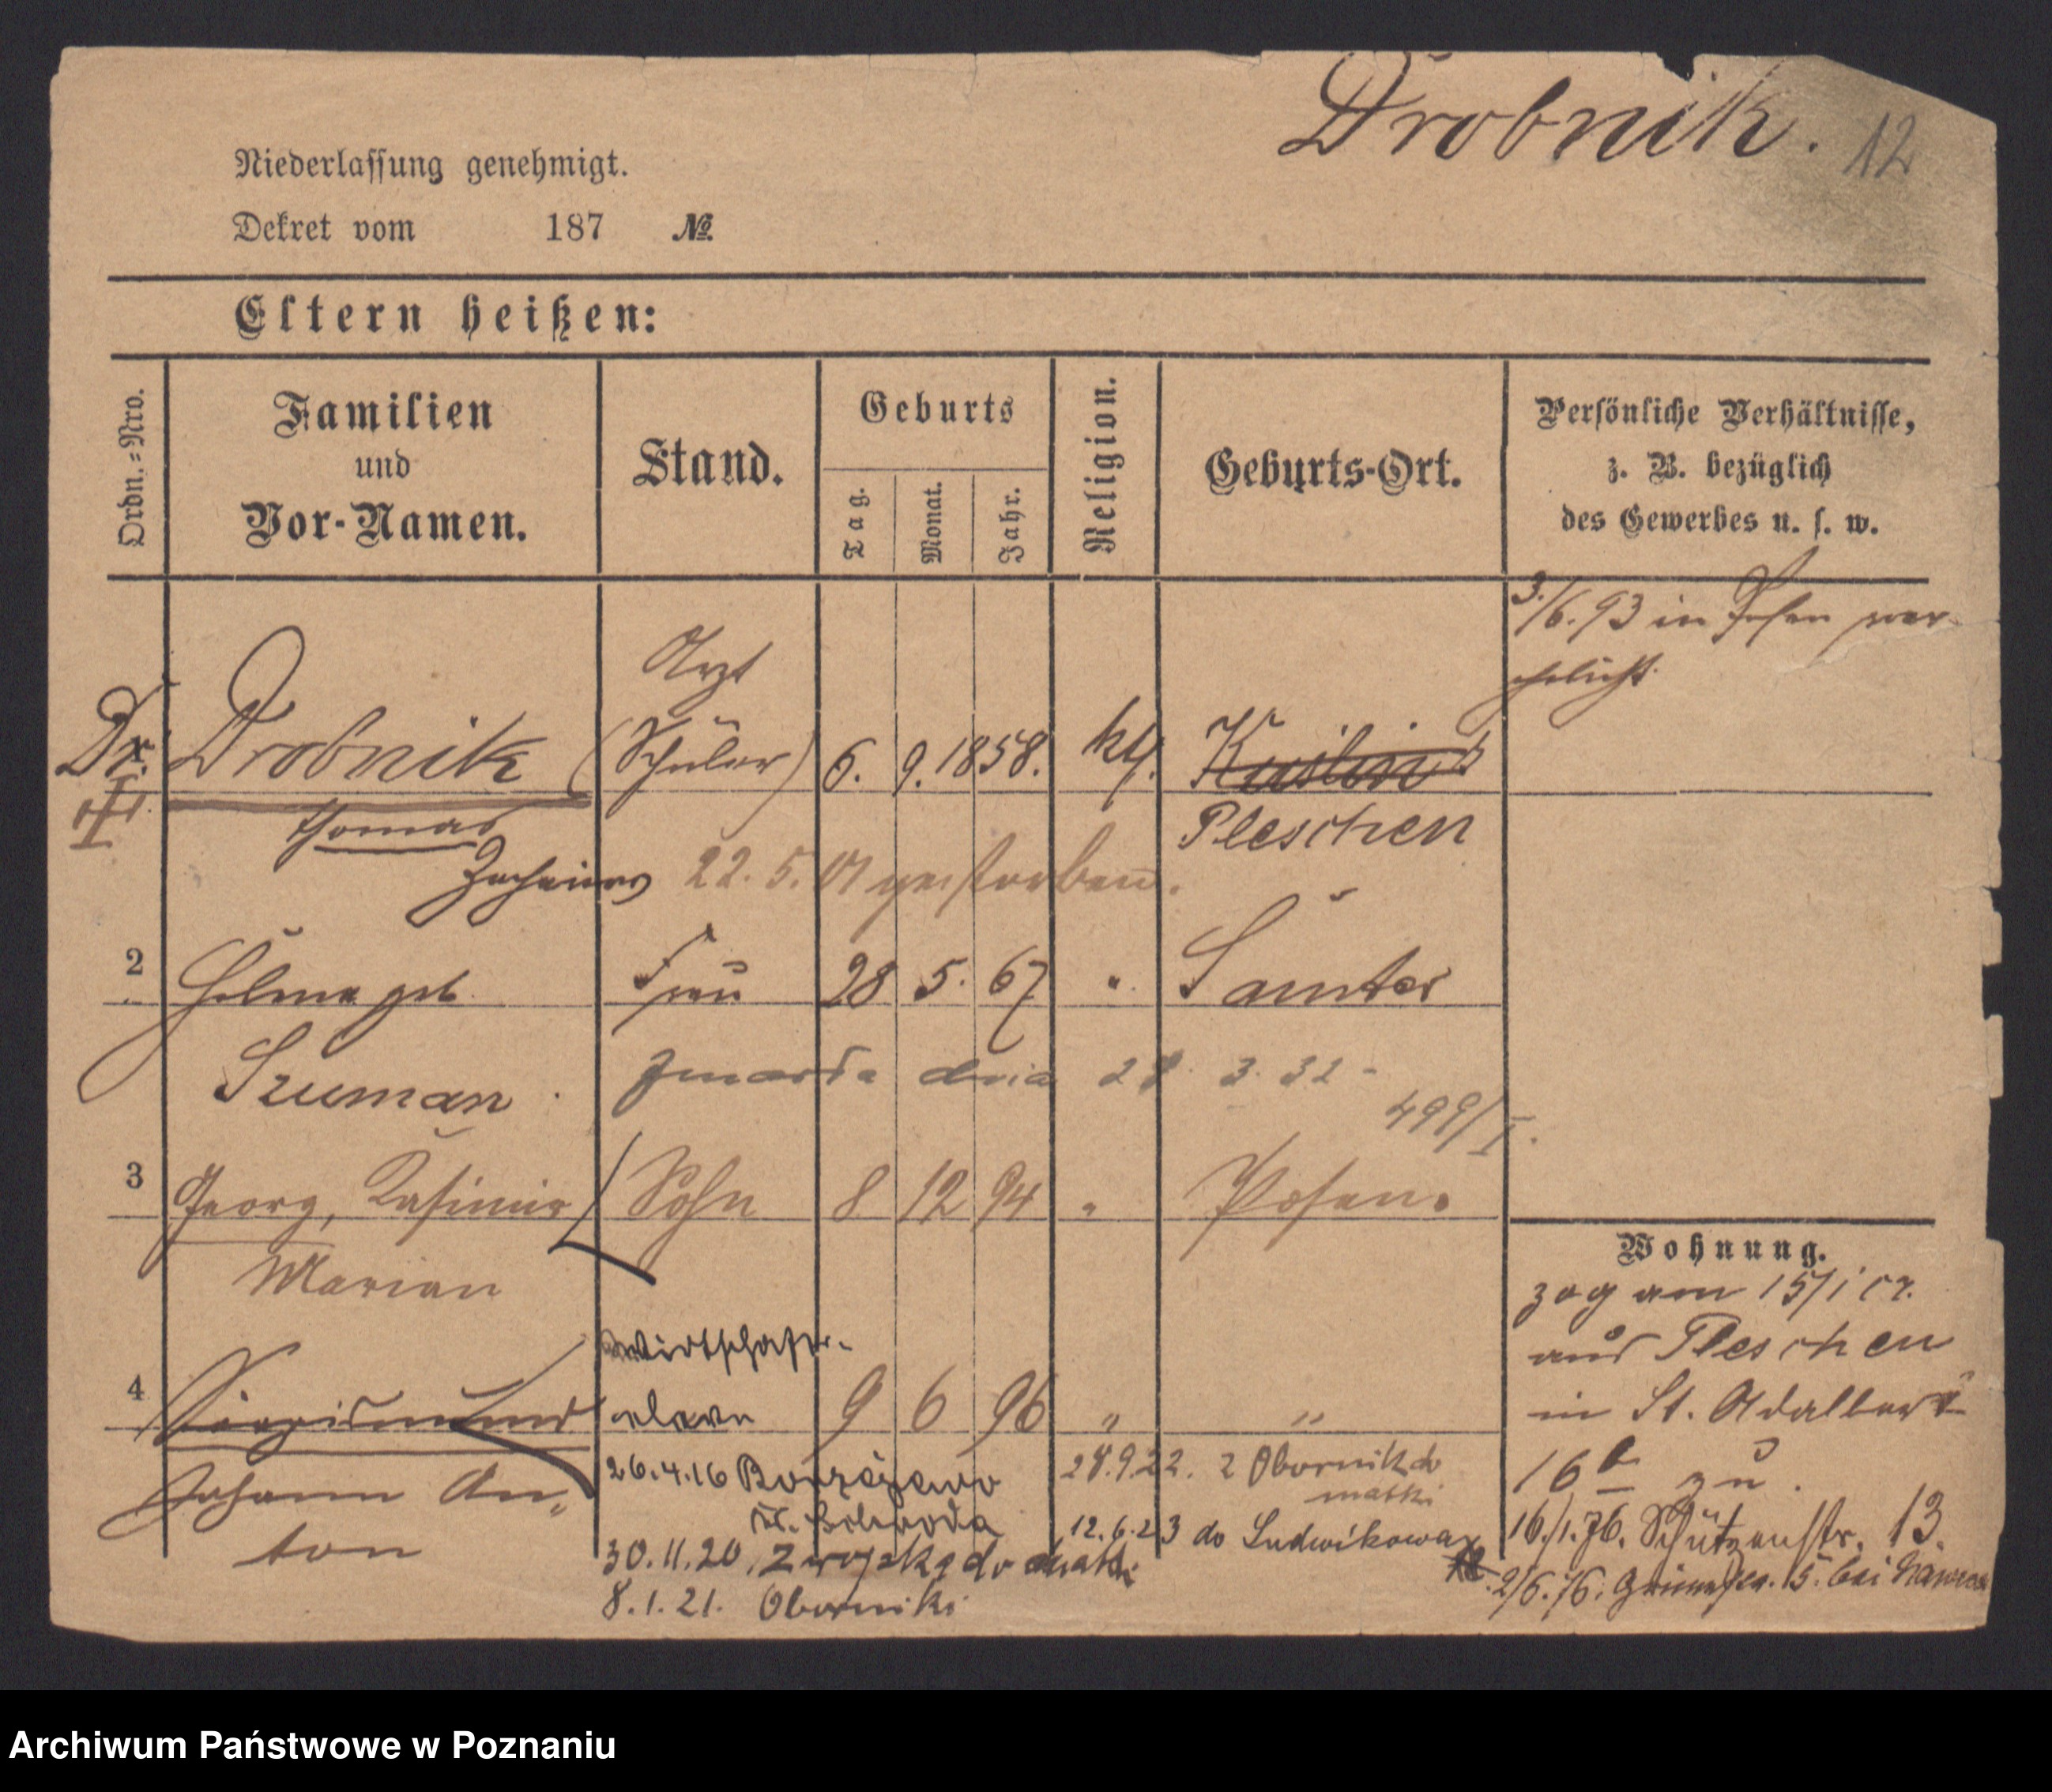 Drobnik. 12
Niederlassung genehmigt.
Dekret vom 187 №
Eltern heißen:
Ordn.=Nro.
Familien
und
Vor-Namen.
Stand.
Geburts
Tag.
Monat.
Jahr.
Religion.
Geburts-Ort.
Persönliche Verhältnisse,
z. B. bezüglich
des Gewerbes u. s. w.
3./6.93 in Posen ver-
ehelicht.
Arzt
Dr. Drobnik (Schüler) 6. 9. 1858. kth.
III
Thomas Pleschen
22. 5. 01 gestorben.
2 geb. Frau 28 5. 67 " Samter
Szuman
zmarła dnia 3. 32 -
499/I.
3 Georg, Kasimir Sohn 8 12 94 " Posen.
Marian
Wohnung.
zog am 15/1 cr.
aus Pleschen
in St. Adalbert
16 b zu.
Wirtschafts-
4 Siegismund eleve 9 6 96 " "
Johann An-
ton
26.4.16
28.9.22. z Obornik do
matki
30.11.20 do matki
12.6.23 do Ludwikowa
8.1.21. Oborniki
16./1.76. Schützenstr. 13.
2/6./6. 5. bei
Archiwum Państwowe w Poznaniu